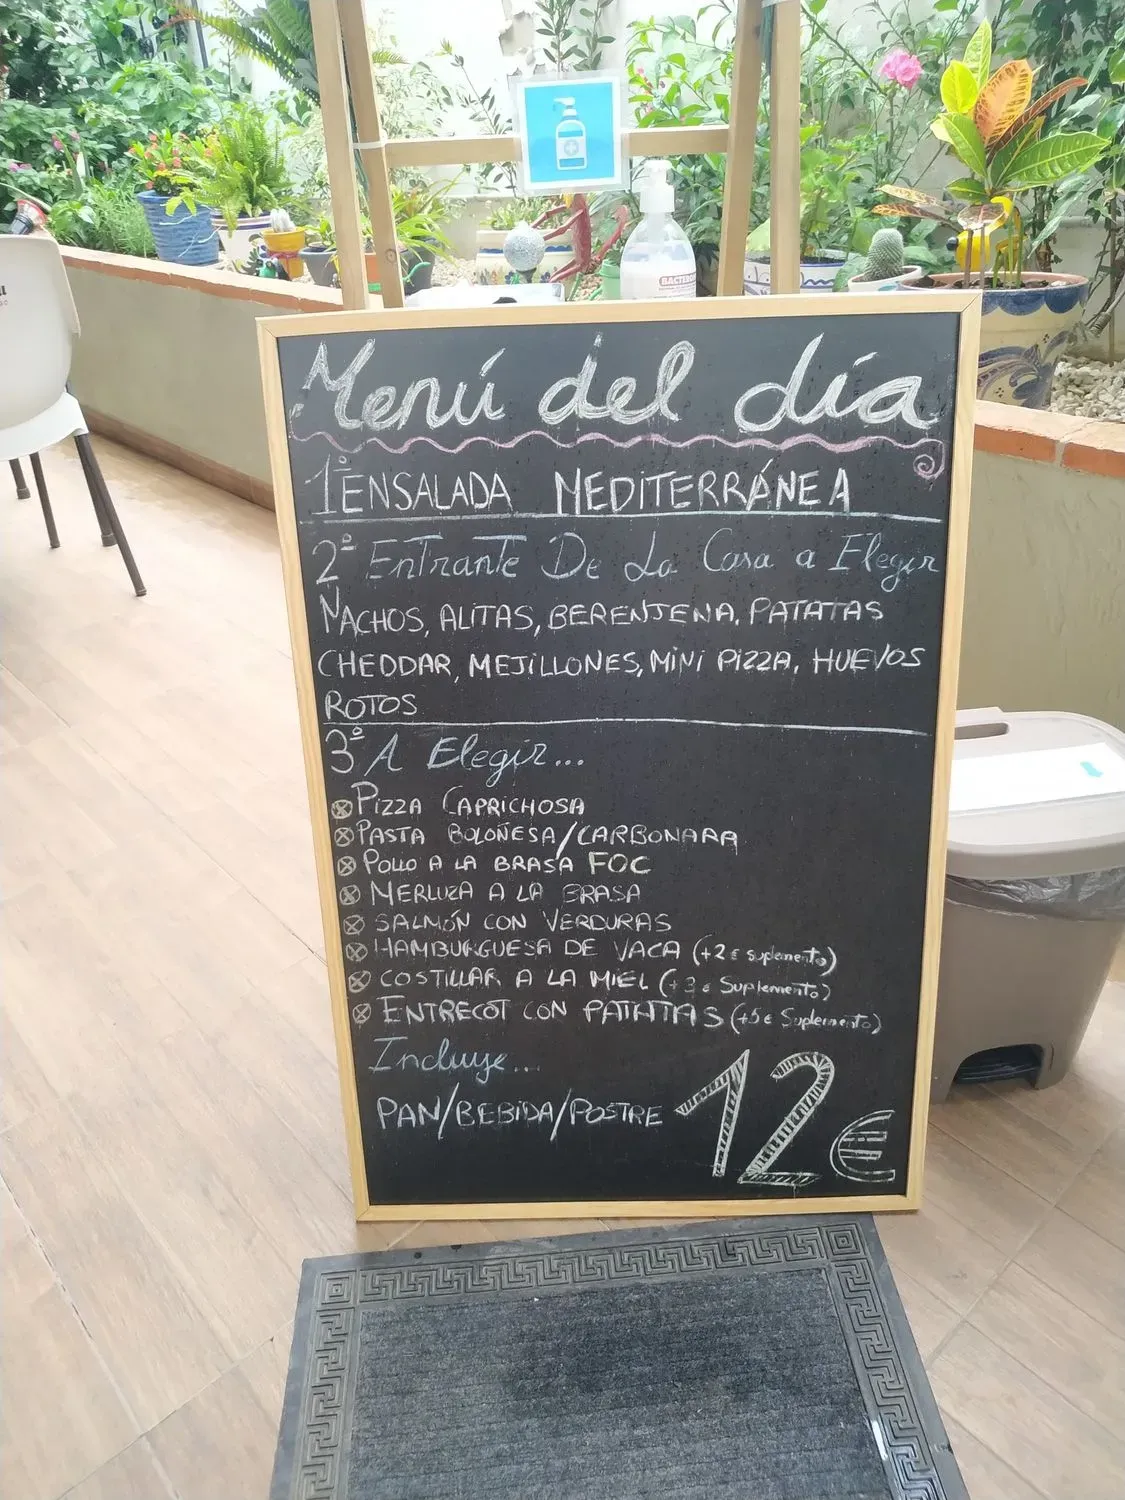 Menú del día
1º ENSALADA MEDITERRÁNEA
2º Entrante De La Casa a Elegir
NACHOS, ALITAS, BERENJENA, PATATAS
CHEDDAR, MEJILLONES, MINI PIZZA, HUEVOS
ROTOS
3º A Elegir...
PIZZA CAPRICHOSA
PASTA BOLOÑESA/CARBONARA
POLLO A LA BRASA FOC
MERLUZA A LA BRASA
SALMÓN CON VERDURAS
HAMBURGUESA DE VACA (+2€ suplemento)
COSTILLAR A LA MIEL (+3€ Suplemento)
ENTRECOT CON PATATAS (+5€ Suplemento)
Incluye...
PAN/BEBIDA/POSTRE 12€